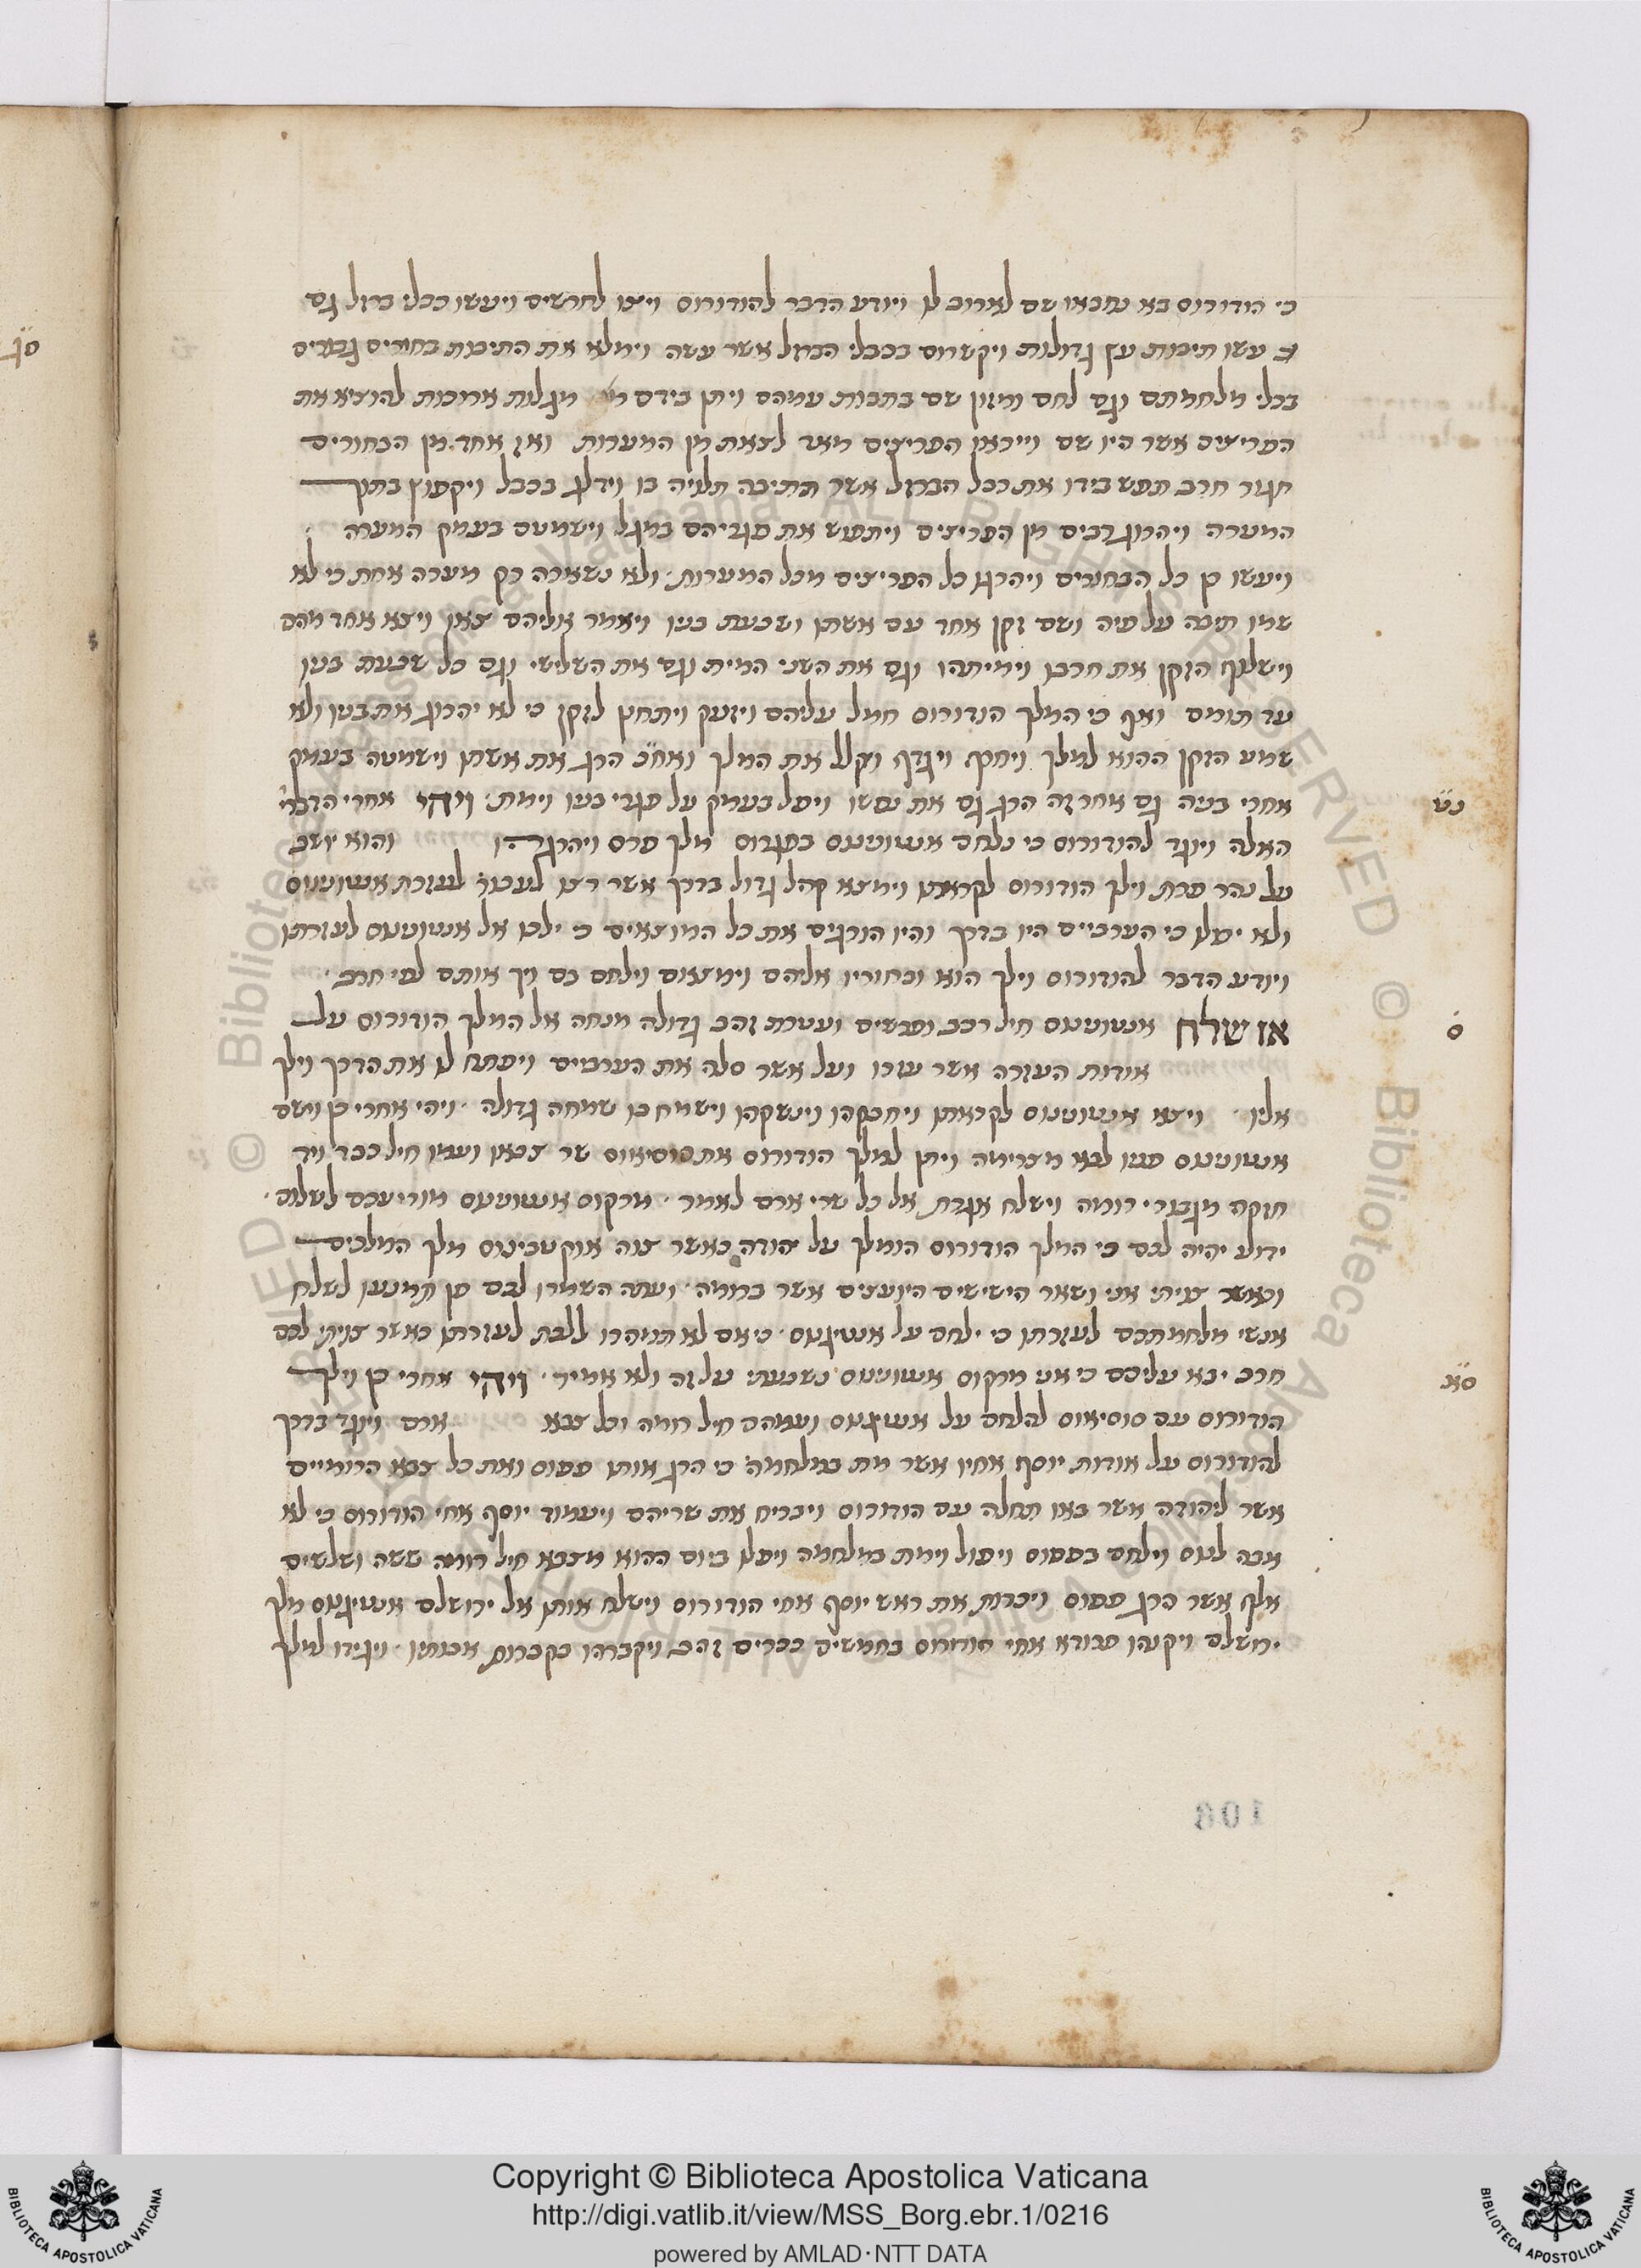 כי הורודוס בא נחבאו שם לארוב לו ויודע הדבר להורודוס ויצו לחרשים ויעשו כבלי ברזל גם
עשו תיבות עץ גדולות ויקשרום בכבלי הברזל אשר עשה וימלא את התיבות בחורים גבורים
בכלי מלחמתם וגם לחם ומזון שם בתבות עמהם ויתן בידם מגלות ארוכות להוציא את
הפריצים אשר היו שם וייראו הפריצים מאד לצאת מן המערות ואז אחד מן הבחורים
חגור חרב תפש בידו את כבל הברזל אשר התיבה תלויה בו וידלג בכבל ויקפוץ בתוך
המערה ויהרוג רבים מן הפריצים ויתפש את פגריהם במגל וישמטם בעמק המערה
ויעשו כן כל הבחורים ויהרגו כל הפריצים מכל המערות ולא נשארה רק מערה אחת כי לא
שמו תיבה על פיה ושם זקן אחד עם אשתו ושבעת בניו ויאמר אליהם צאו ויצא אחד מהם
וישלוף הזקן את חרבו וימיתהו וגם את השני המית וגם את השלישי וגם כל שבעת בניו
עד תומם ואף כי המלך הורודוס חמל עליהם ויזעק ויתחנן לזקן כי לא יהרוג את בניו ולא
שמע הזקן ההוא למלך ויחרף ויגדף וקלל את המלך ואח״כ הרג את אשתו וישמטה בעמק
אחרי בניה גם אחר זה הרג גם את נפשו ויפל בעמק על פגרי בניו וימת ויהי אחרי הדברי׳
האלה ויוגד להורודוס כי נלחם אנטוניאוס בפגרוס מלך פרס ויהרגהו והוא יושב
על נהר פרת וילך הורודוס לקראתו וימצא קהל גדול בדרך אשר רצו לעבור לעזרת אנטוניוס
ולא יכלו כי הערביים היו בדרך והיו הורגים את כל המוצאים כי ילכו אל אנטוניוס לעזרתו
ויודע הדבר להורודוס וילך הוא ובחוריו אליהם וימצאום וילחם בם ויך אותם לפי חרב
אז שלח אנטוניוס חיל רכב ופרשים ועטרת זהב גדולה מנחה אל המלך הורודוס על
אודות העזרה אשר עזרו ועל אשר סלה את הערביים ויפתח לו את הדרך וילך
אליו ויצא אנטוניוס לקראתו ויחבקהו וינשקהו וישמח בו שמחה גדולה ויהי אחרי כן וישם
אנטוניוס פניו לבא מצרימה ויתן למלך הורודוס את סוסיאוס שר צבאו ועמו חיל כבד ויד
חזקה מגבורי רומה וישלח אגרת אל כל שרי ארם לאמר מרקוס אנטוניוס מורי עבם לשלום
ידוע יהיה לכם כי המלך הורודוס הומלך על יהודה כאשר צוה אוקטבינוס מלך המלכים
וכאשר צויתי אני ושאר הישישים היועצים אשר ברומה ועתה השמרו לכם פן תמנעו לשלח
אנשי מלחמתכם לעזרתו כי ילחם על אנטיגנוס כי אם לא תמהרו ללכת לעזרתו כאשר צויתי לכם
חרב יבא עליכם כי אני מרקוס אנטוניוס נשבעתי על זה ולא אמיר ויהי אחרי כן וילך
הורודוס עם סוסיאוס להלחם על אנטיגנוס ועמהם חיל רומה וכל צבא ארם ויוגד בדרך
להורודוס על אודות יוסף אחיו אשר מת במלחמה כי הרג אותו פפוס ואת כל צבא הרומיים
אשר ליהודה אשר באו תחלה עם הורודוס ויבריח את שריהם ויעמוד יוסף אחי הורודוס כי לא
אבה לנוס וילחם בפפוס ויפול וימת במלחמה ויפלו ביום ההוא מצבא חיל רומה ששה ושלשים
אלף אשר הרג פפוס ויכרות את ראש יוסף אחי הורודוס וישלח אותו אל ירושלם אנטיגנוס מלך
ירושלם ויקנהו פרורא אחי הורודוס בחמשים ככרים זהב ויקברהו בקברות אבותיו ויגידו למלך
נט
ס
סא
Copyright © Biblioteca Apostolica Vaticana
http://digi.vatlib.it/view/MSS_Borg.ebr.1/0216
powered by AMLAD·NTT DATA